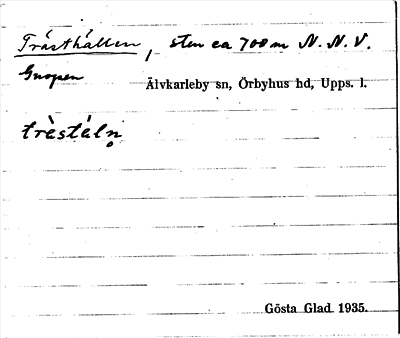 Trästhällen, sten ca 700 m N. N. V.
Gnupen
Älvkarleby sn, Örbyhus hd, Upps. l.
trὰstáln̥
Gösta Glad 1935.